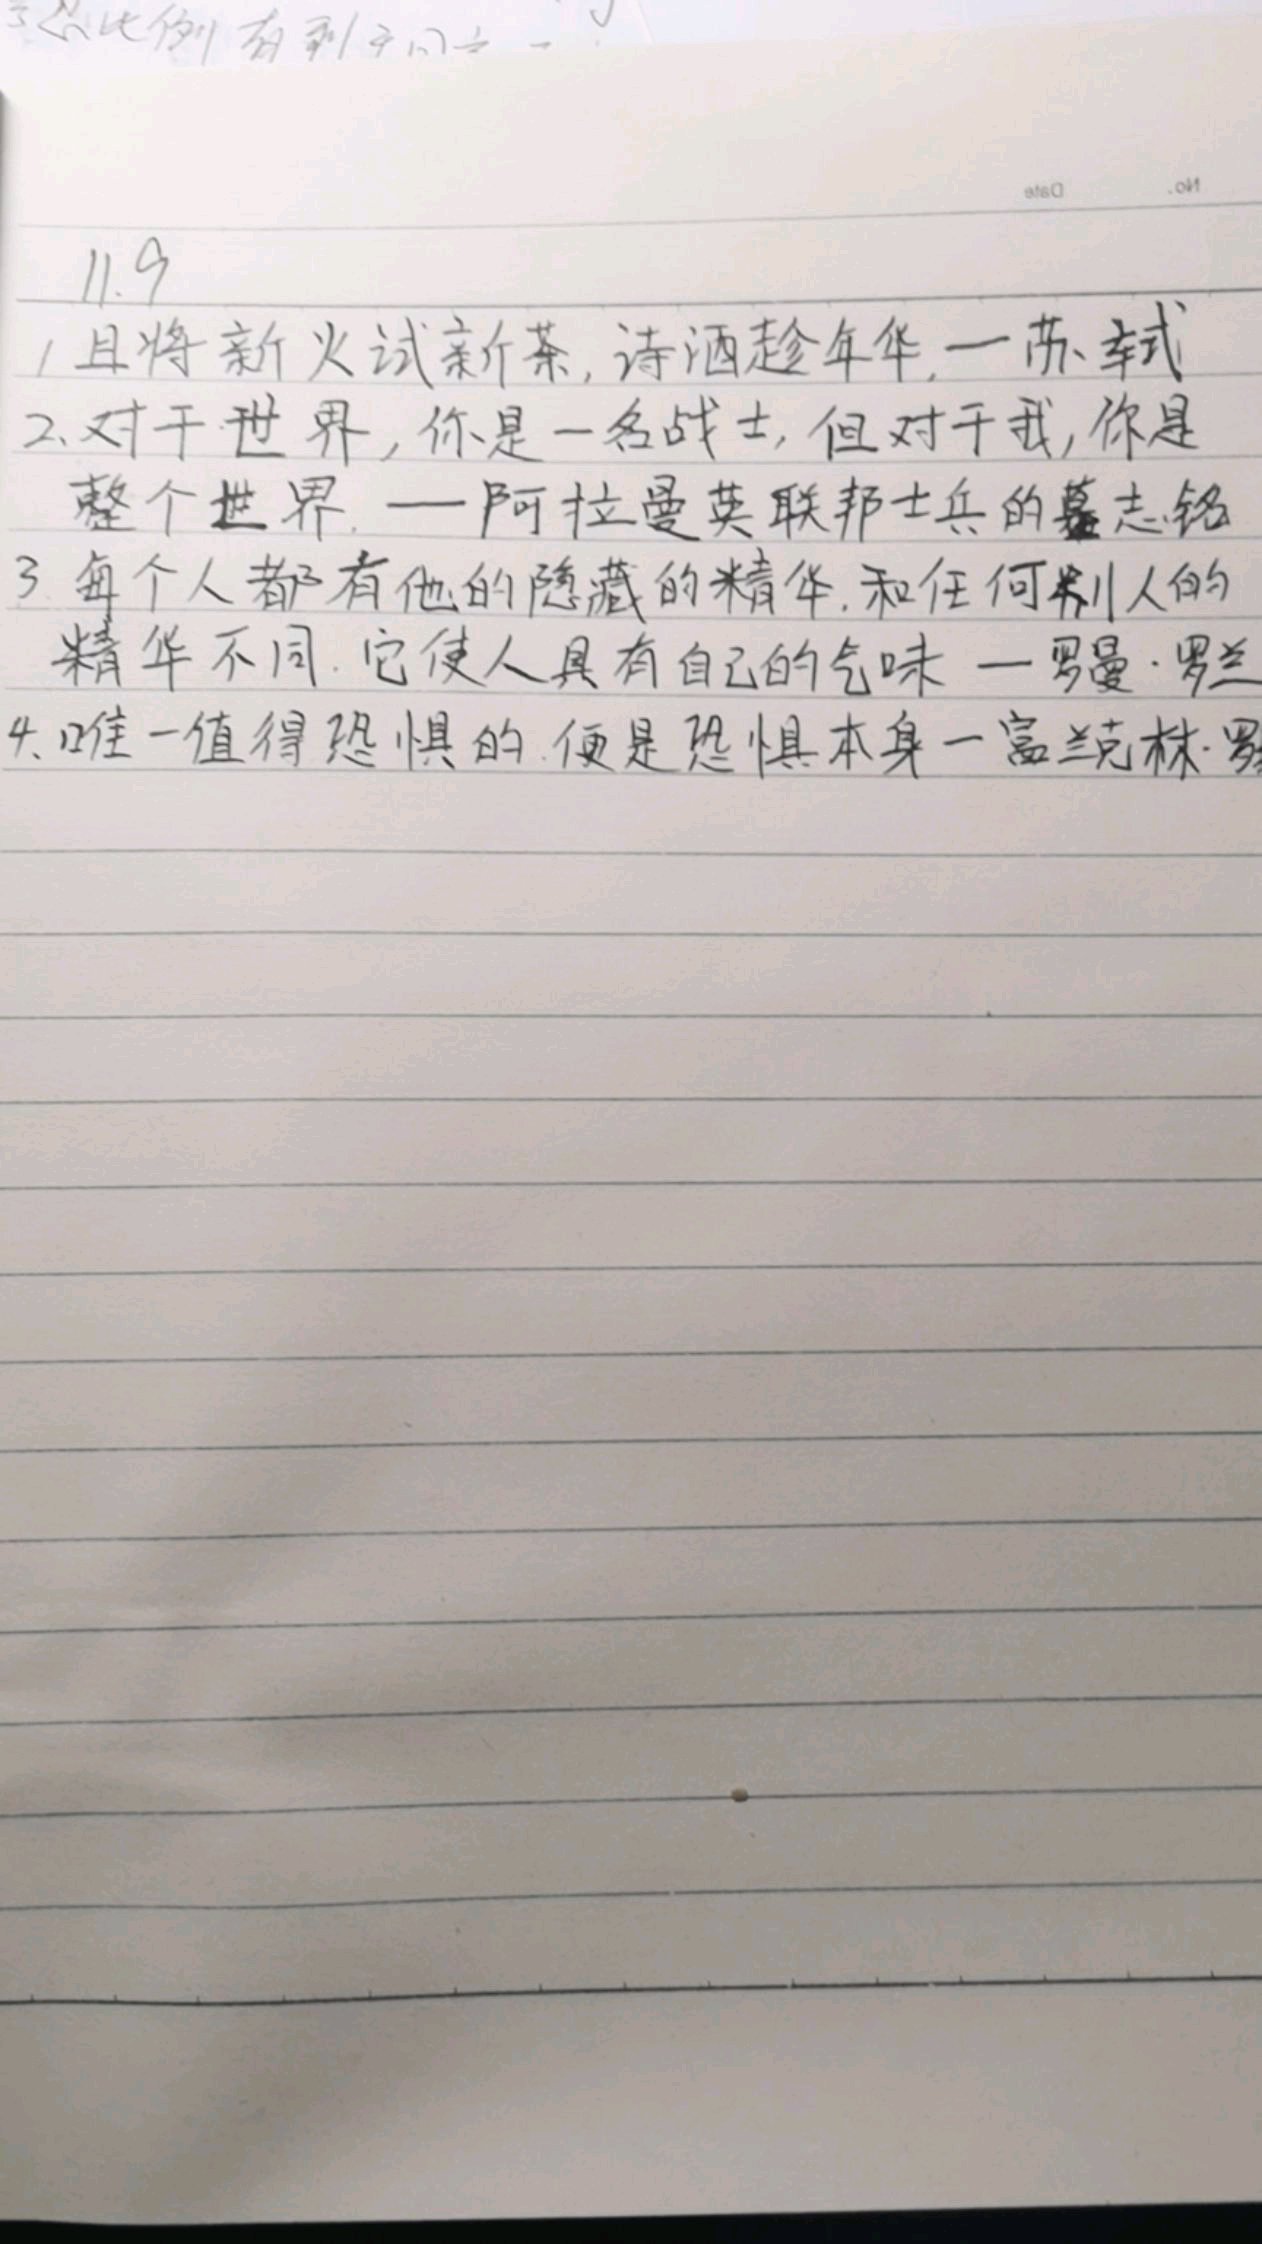 比例
No. Date
11.9
1、且将新火试新茶,诗酒趁年华.—苏轼
2、对于世界,你是一名战士,但对于我,你是
整个世界.—阿拉曼英联邦士兵的墓志铭
3.每个人都有他的隐藏的精华.和任何别人的
精华不同.它使人具有自己的气味—罗曼·罗兰
4、唯一值得恐惧的.便是恐惧本身—富兰克林·罗